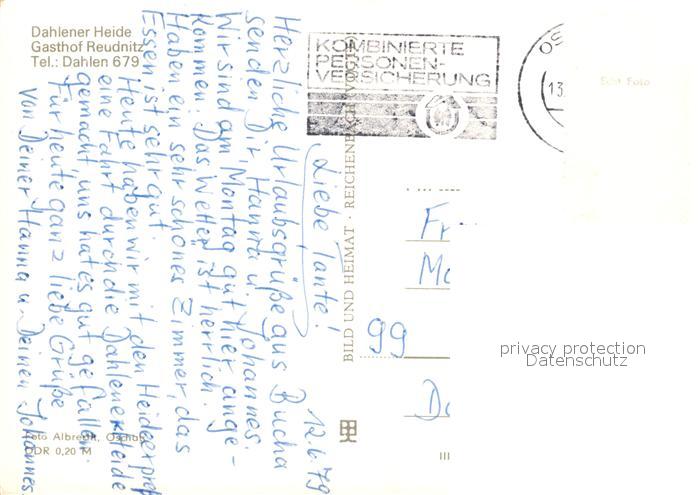 Dahlener Heide
Gasthof Reudnitz
Tel.: Dahlen 679
KOMBINIERTE
PERSONEN-
VERSICHERUNG
OS
13.
Echt Foto
12.6.79
Liebe Tante!
Herzliche Urlaubsgrüße aus Bucha
senden Dir Hanna u. Johannes.
Wir sind am Montag gut hier ange-
kommen. Das Wetter ist herrlich.
Haben ein sehr schönes Zimmer, das
Essen ist sehr gut.
Heute haben wir mit den
eine Fahrt durch die Dahlener Heide
gemacht, uns hat es gut gefallen.
Für heute ganz liebe Grüße
von Deiner Hanna u. Deinen Johannes.
BILD UND HEIMAT · REICHENBACH
Fr
99
privacy protection
Datenschutz
Foto Albrecht, Oschatz
DDR 0,20 M
III